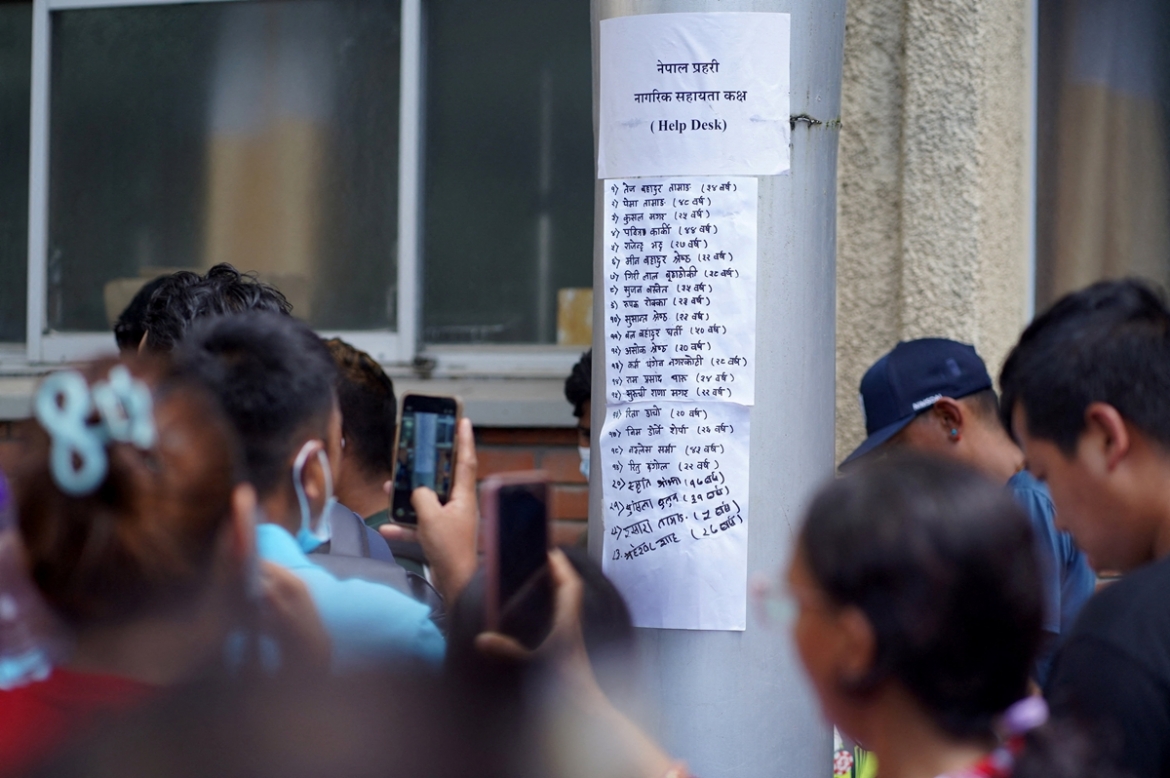 नेपाल प्रहरी
नागरिक सहायता कक्ष
( Help Desk)
१) तेज बहादुर तामाङ (२४ वर्ष)
२) पेमा तामाङ (४८ वर्ष)
३) कुसल मगर (२५ वर्ष)
४) पवित्रा कार्की (४४ वर्ष)
५) राजेन्द्र भट्ट (२७ वर्ष)
६) मीन बहादुर श्रेष्ठ (२२ वर्ष)
७) गिरी लाल बुढाठोकी (२८ वर्ष)
८) सुजन (२५ वर्ष)
९) रुपक रोक्का (२३ वर्ष)
१०) श्रेष्ठ (२२ वर्ष)
११) बल बहादुर घर्ती (५० वर्ष)
१२) असोक श्रेष्ठ (२० वर्ष)
१३) कर्म नगरकोटी (२८ वर्ष)
१४) राम प्रसाद (२४ वर्ष)
१५) सुरुची राना मगर (२२ वर्ष)
१६) रिता (२० वर्ष)
१७) निम डोर्जे शेर्पा (२६ वर्ष)
१८) (४५ वर्ष)
१९) रितु (२२ वर्ष)
२०) (१६ वर्ष)
२१)
२२) तामाङ
२३. शाह (२६ वर्ष)